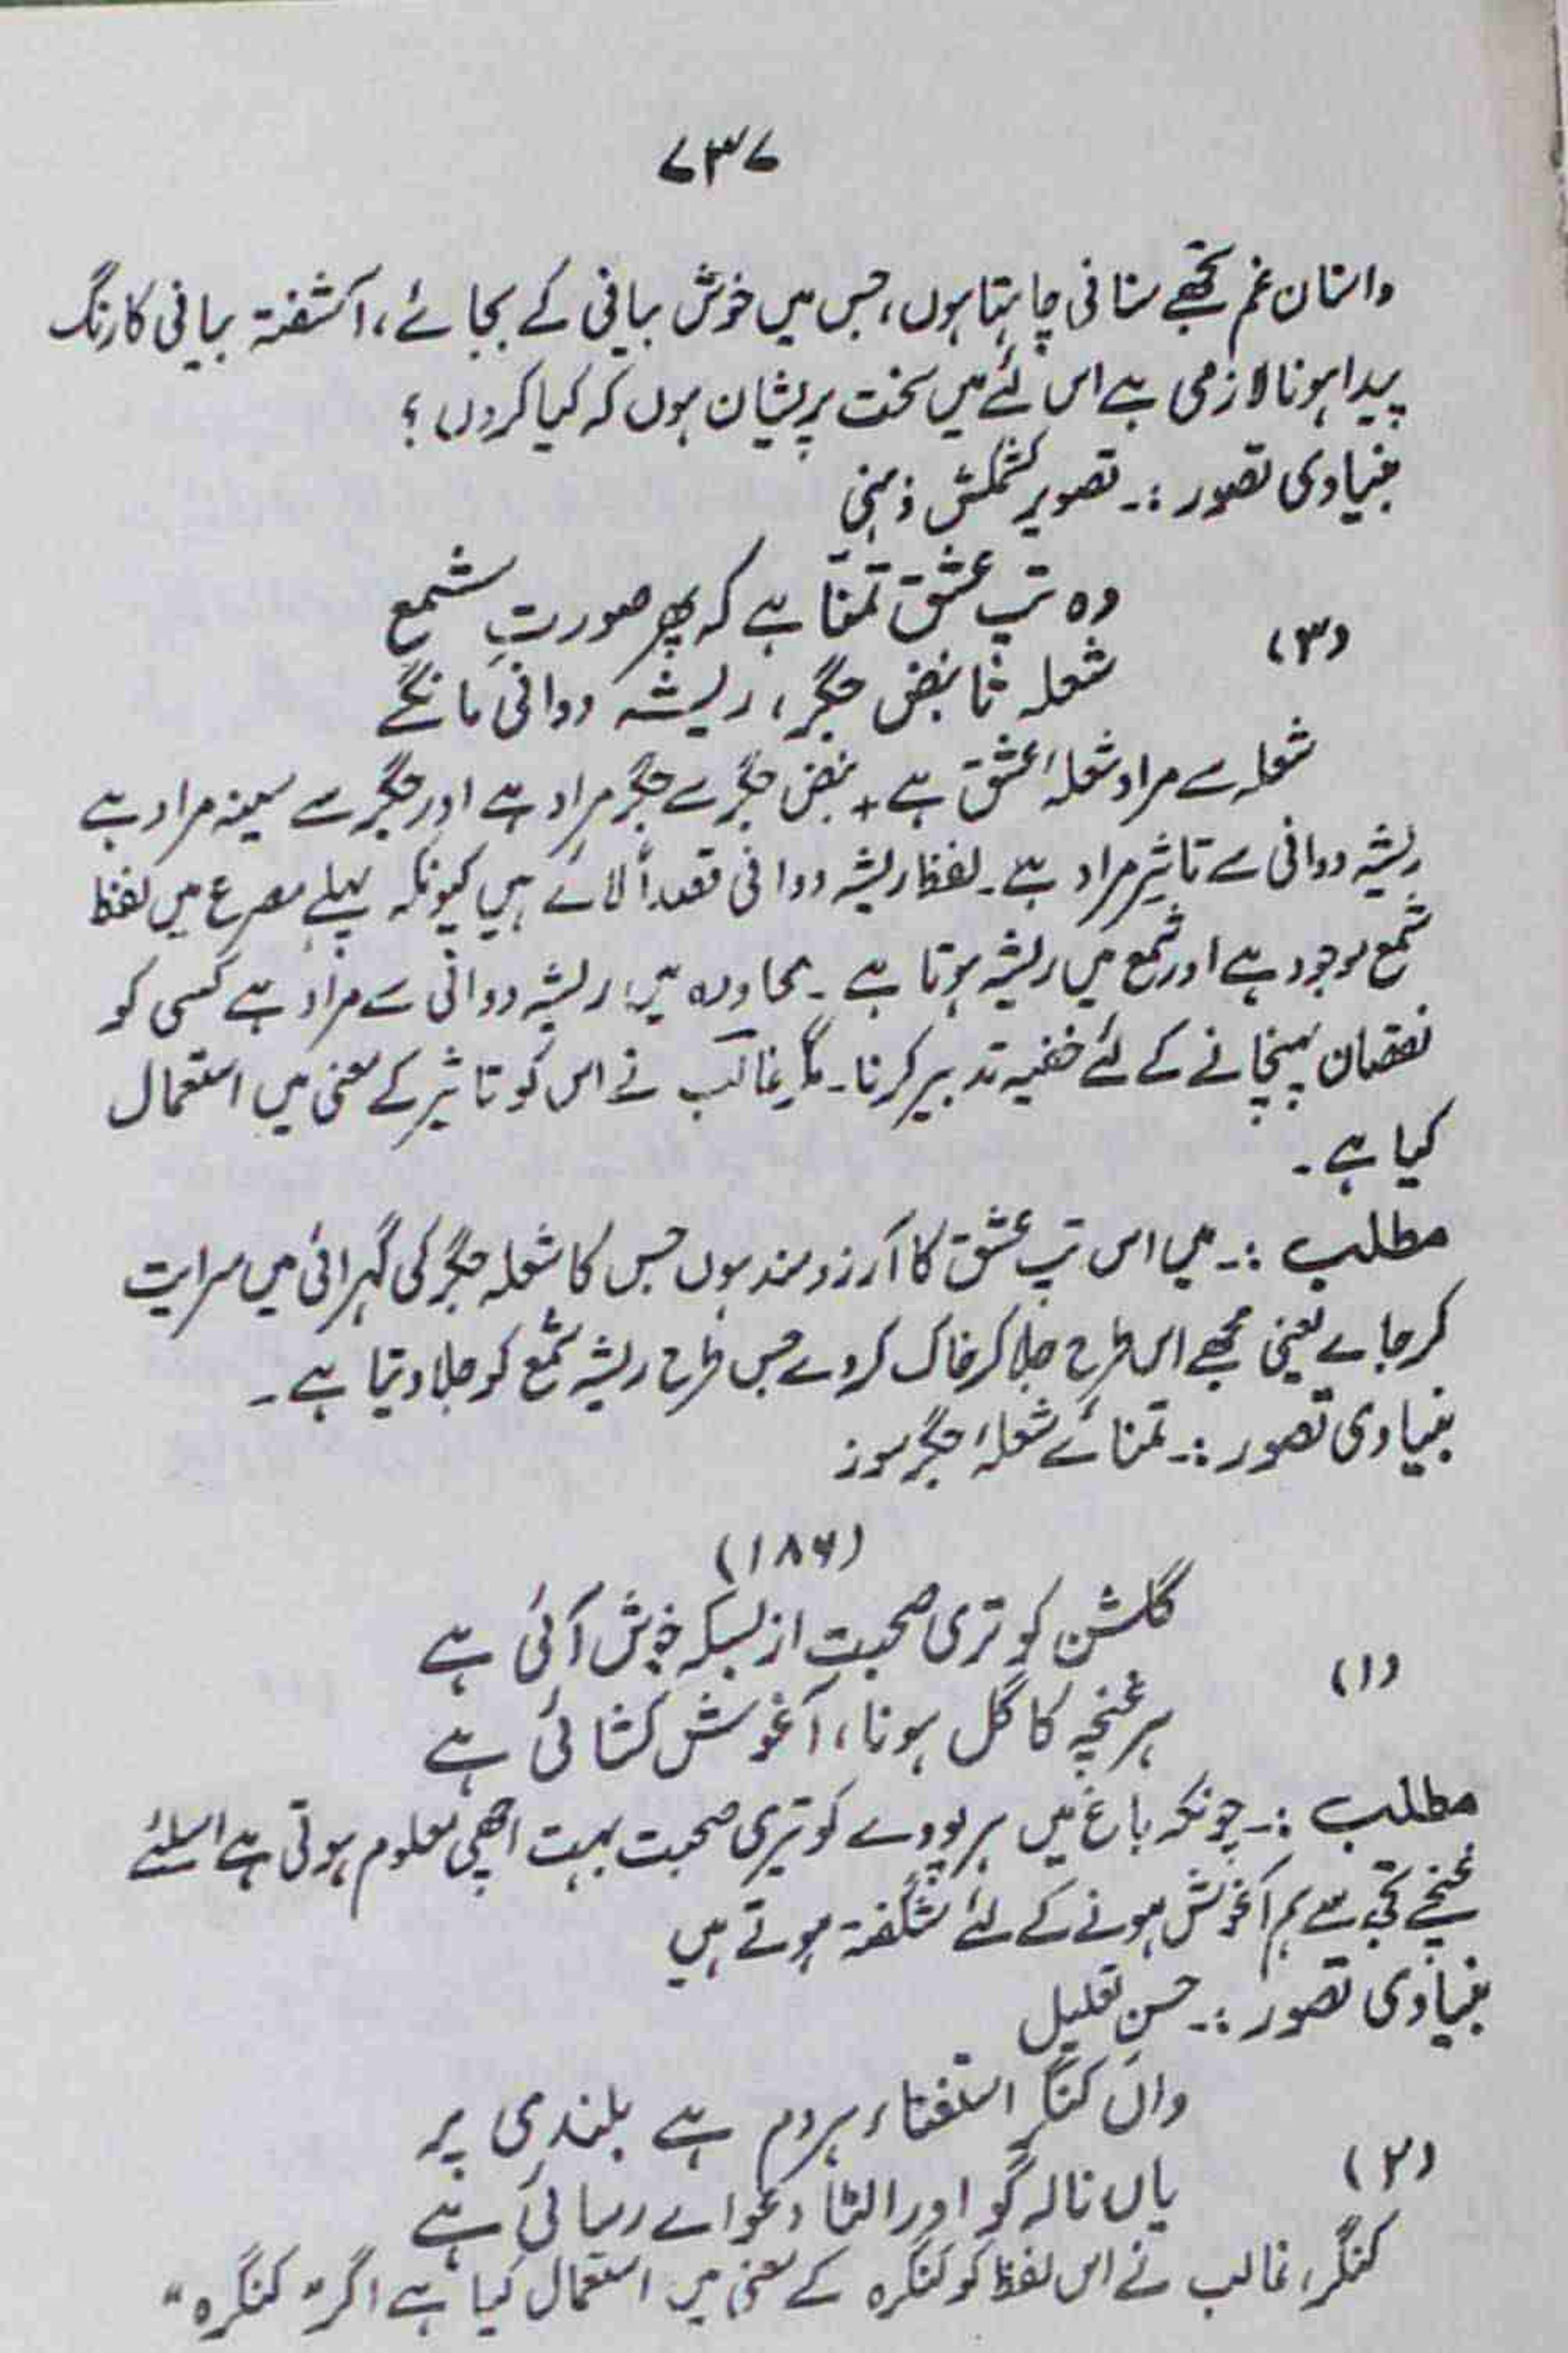 ۷۳۷
داستان غم تجھے سنانی چاہتا ہوں، جس میں خوش بیانی کے بجائے، آشفتہ بیانی کا رنگ
پیدا ہونا لازمی ہے اس لئے میں سخت پریشان ہوں کہ کیا کروں؟
بنیادی تصور :۔ تصویر کشمکش ذہنی
(۳)
وہ تپِ عشق تمنّا ہے کہ پھر صورتِ شمع
شعلہ تا نبض جگر، ریشہ دوانی مانگے
شعلہ سے مراد شعلۂ عشق ہے + نبض جگر سے جگر مراد ہے اور جگر سے سینہ مراد ہے
ریشہ دوانی سے تاثیر مراد ہے۔ لفظ ریشہ دوانی قصداً لائے ہیں کیونکہ پہلے مصرع میں لفظ
شمع موجود ہے اور شمع میں ریشہ ہوتا ہے۔ محاورہ میں ریشہ دوانی سے مراد ہے کسی کو
نقصان پہنچانے کے لئے خفیہ تدبیر کرنا۔ مگر غالب نے اس کو تاثیر کے معنی میں استعمال
کیا ہے۔
مطلب :۔ میں اس تپ عشق کا آرزو مند ہوں جس کا شعلہ جگر کی گہرائی میں سرایت
کر جائے یعنی مجھے اس طرح جلا کر خاک کر دے جس طرح ریشہ شمع کو جلا دیتا ہے۔
بنیادی تصور :۔ تمنائے شعلۂ جگر سوز
(۱۸۶)
(۱)
گلشن کو تری صحبت از بسکہ خوش آئی ہے
ہر غنچہ کا گل ہونا، آغوش کشائی ہے
مطلب :۔ چونکہ باغ میں ہر پودے کو تیری صحبت بہت اچھی معلوم ہوتی ہے اسلئے
غنچے تجھ سے ہم آغوش ہونے کے لئے شگفتہ ہوتے ہیں
بنیادی تصور :۔ حسن تعلیل
واں کنگرِ استغناء ہردم ہے بلندی پر
(۲)
یاں نالہ کو اور الٹا دعوائے رسائی ہے
کنگر، غالب نے اس لفظ کو کنگرہ کے معنی میں استعمال کیا ہے اگر "کنگرہ"